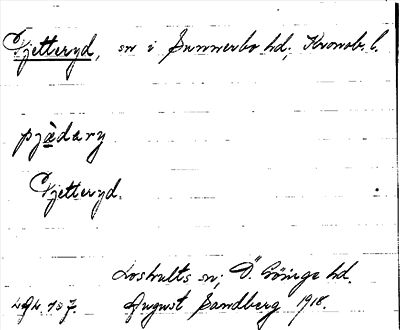 Vjetteryd, sn i Sunnerbo hd; Kronob. l.
pjàdary
Vjetteryd.
Loshults sn; Ö. Göinge hd.
August Sandberg 1918.